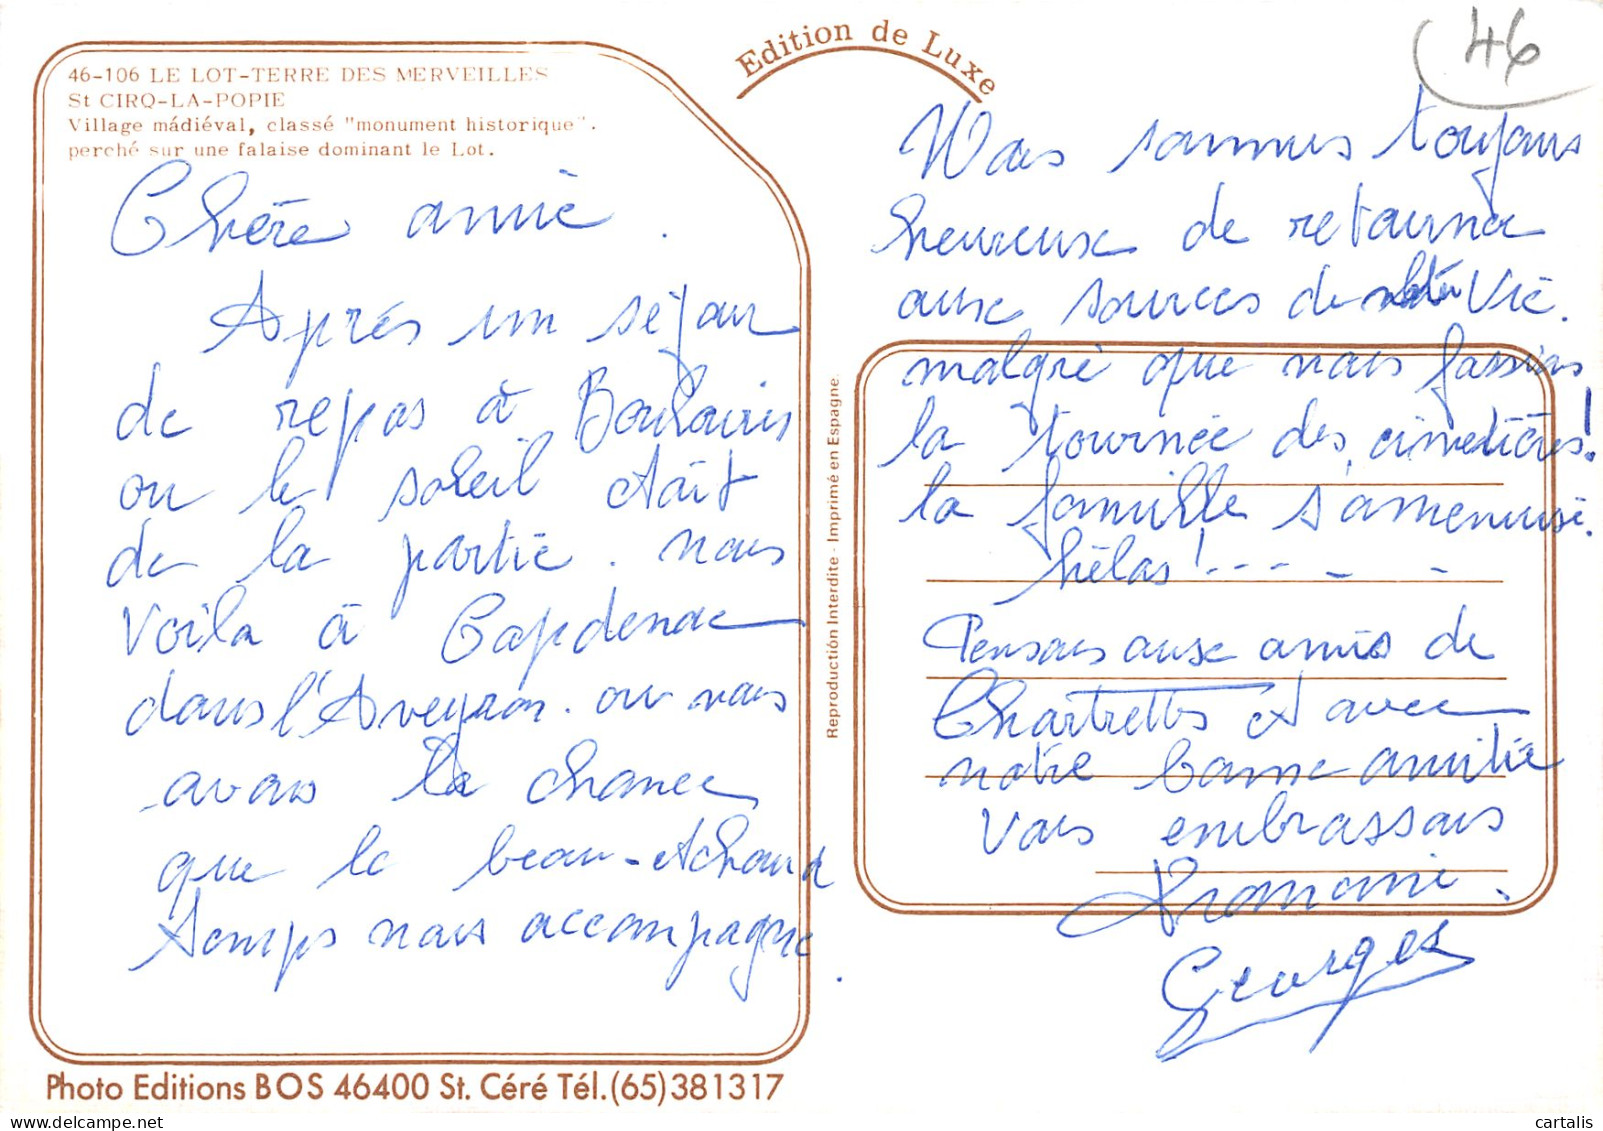 46-106 LE LOT-TERRE DES MERVEILLES
St CIRQ-LA-POPIE
Village mádiéval, classé "monument historique".
perché sur une falaise dominant le Lot.
Chère amie.
Après un séjour
de repos à Boulouris
ou le soleil était
de la partie. nous
voilà à Capdenac
dans l'Aveyron. ou nous
avons la chance
que le beau et chaud
temps nous accompagne.
Photo Editions BOS 46400 St. Céré Tél.(65)381317
Reproduction Interdite - Imprimé en Espagne
Edition de Luxe
46
Nous sommes toujours
heureux de retourner
aux sources de notre vie.
malgré que nous fassions
la tournée des cimetières!
la famille s'amenuise.
hélas! - - - - -
Pensons aux amis de
Chartrettes et avec
notre bonne amitié
vous embrassons
Georges
cartalis
www.delcampe.net